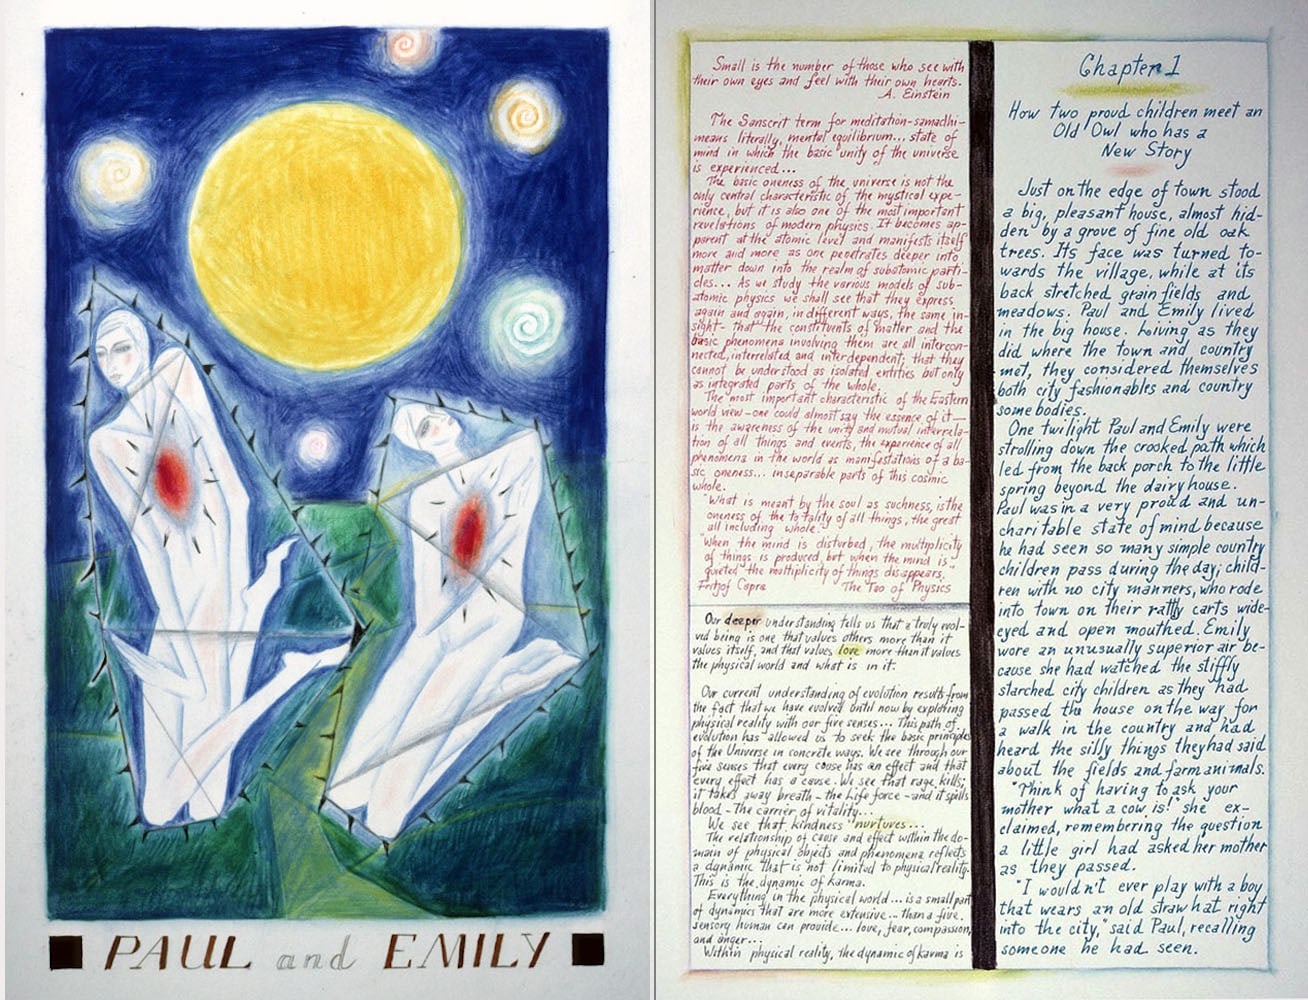 PAUL and EMILY
Small is the number of those who see with
their own eyes and feel with their own hearts.
A. Einstein
The Sanscrit term for meditation-samadhi-
means literally, mental equilibrium... state of
mind in which the basic unity of the universe
is experienced...
The basic oneness of the universe is not the
only central characteristic of the mystical expe-
rience, but it is also one of the most important
revelations of modern physics. It becomes ap-
parent at the atomic level and manifests itself
more and more as one penetrates deeper into
matter down into the realm of subatomic parti-
cles... As we study the various models of sub-
atomic physics we shall see that they express
again and again, in different ways, the same in-
sight- that the constituents of matter and the
basic phenomena involving them are all intercon-
nected, interrelated and interdependent; that they
cannot be understood as isolated entities but only
as integrated parts of the whole.
The most important characteristic of the Eastern
world view - one could almost say the essence of it —
is the awareness of the unity and mutual interrela-
tion of all things and events, the experience of all
phenomena in the world as manifestations of a ba-
sic oneness... inseparable parts of this cosmic
whole.
"What is meant by the soul as suchness, is the
oneness of the totality of all things, the great
all including whole."
"When the mind is disturbed, the multiplicity
of things is produced, but when the mind is
quieted the multiplicity of things disappears."
Fritjof Capra The Tao of Physics
Our deeper understanding tells us that a truly evol-
ved being is one that values others more than it
values itself, and that values love more than it values
the physical world and what is in it.
Our current understanding of evolution results from
the fact that we have evolved until now by exploring
physical reality with our five senses... This path of
evolution has allowed us to seek the basic principles
of the Universe in concrete ways. We see through our
five senses that every cause has an effect and that
every effect has a cause. We see that rage kills;
it takes away breath - the Life force - and it spills
blood - The carrier of vitality...
We see that kindness nurtures...
The relationship of cause and effect within the do-
main of physical objects and phenomena reflects
a dynamic that is not limited to physical reality.
This is the dynamic of karma.
Everything in the physical world... is a small part
of dynamics that are more extensive... than a five
sensory human can provide... love, fear, compassion,
and anger...
Within physical reality, the dynamic of karma is
Chapter 1
How two proud children meet an
Old Owl who has a
New Story
Just on the edge of town stood
a big, pleasant house, almost hid-
den by a grove of fine old oak
trees. Its face was turned to-
wards the village, while at its
back stretched grain fields and
meadows. Paul and Emily lived
in the big house. Living as they
did where the town and country
met, they considered themselves
both city fashionables and country
some bodies.
One twilight Paul and Emily were
strolling down the crooked path which
led from the back porch to the little
spring beyond the dairy house.
Paul was in a very proud and un-
charitable state of mind because
he had seen so many simple country
children pass during the day; child-
ren with no city manners, who rode
into town on their rattly carts wide-
eyed and open mouthed. Emily
wore an unusually superior air be-
cause she had watched the stiffly
starched city children as they had
passed the house on the way for
a walk in the country and had
heard the silly things they had said
about the fields and farm animals.
"Think of having to ask your
mother what a cow is!" she ex-
claimed, remembering the question
a little girl had asked her mother
as they passed.
"I wouldn't ever play with a boy
that wears an old straw hat right
into the city," said Paul, recalling
someone he had seen.